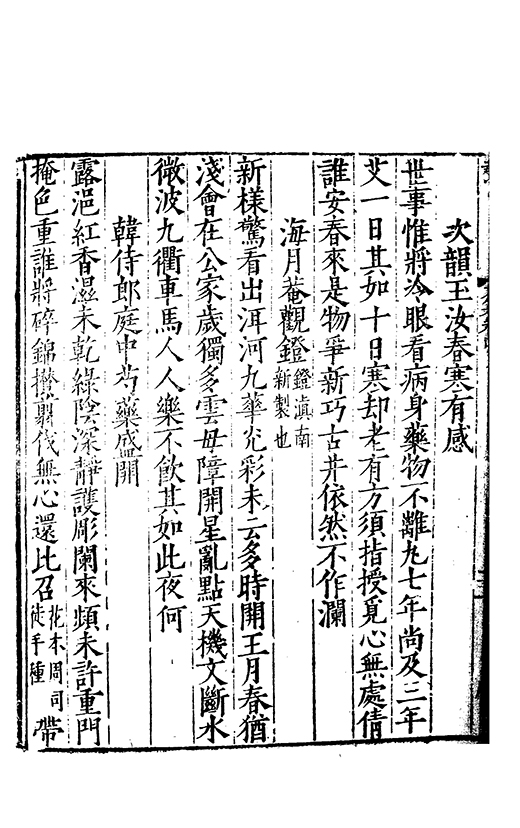 次韻王汝春寒有感
世事惟將冷眼看病身藥物不離丸七年尚及三年
艾一日其如十日寒却老有方須指授覓心無處倩
誰安春來是物爭新巧古井依然不作瀾
海月菴觀鐙鐙滇南新製也
新様驚看出洱河九華光彩未云多時開王月春猶
淺會在公家歲獨多雲母障開星亂點天機文斷水
微波九衢車馬人人樂不飲其如此夜何
韓侍郎庭中芍藥盛開
露浥紅香濕未乾綠陰深靜護彫闌來頻未許重門
掩色重誰將碎錦攢翦伐無心還比召花本周司徒手種帶